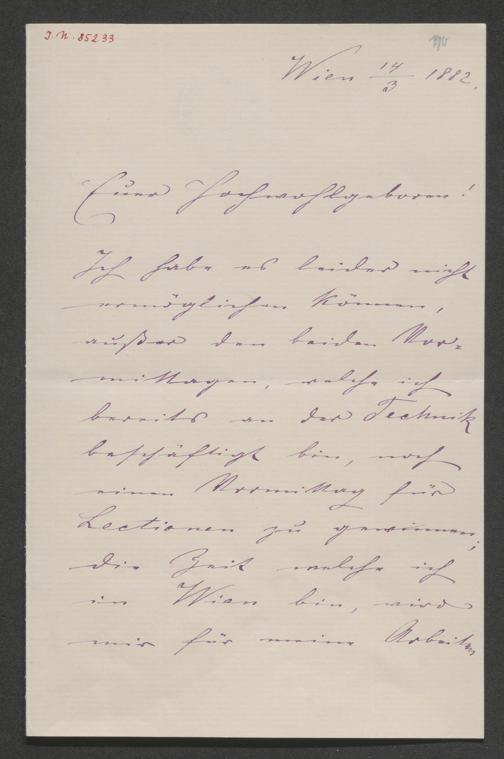 J.N. 85233
Wien 14/3 1882.
Euer Hochwohlgeboren!
Ich habe es leider nicht
ermöglichen können,
außer den beiden Vor-
mittagen, welche ich
bereits an der Technik
beschäftigt bin, noch
einen Vormittag für
Lectionen zu gewinnen;
die Zeit welche ich
in Wien bin, wird
mir für meine Arbeiten